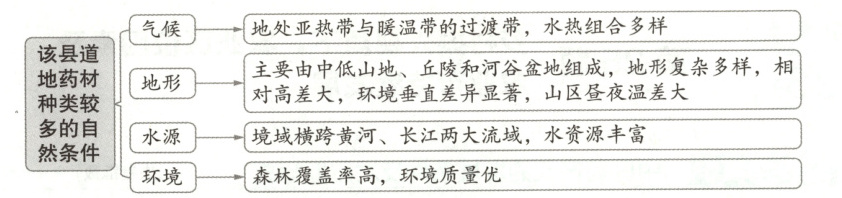 该县道
地药材
种类较
多的自
然条件
气候
地处亚热带与暖温带的过渡带，水热组合多样
地形
主要由中低山地、丘陵和河谷盆地组成，地形复杂多样，相
对高差大，环境垂直差异显著，山区昼夜温差大
水源
境域横跨黄河、长江两大流域，水资源丰富
环境
森林覆盖率高，环境质量优